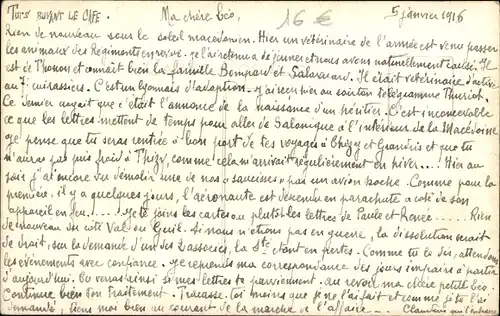 TURC BUVANT LE CAFE. Ma chère Léo, 16 € 5 janvier 1916
Rien de nouveau sous le soleil macédonien. Hier un vétérinaire de l'armée est venu passer
les animaux des Régiments en revue. Je l'ai retenu à déjeuner et nous avons naturellement causé. Il
est de Thonon et connaît bien la famille Bompard et Il était vétérinaire d'active
au 7e cuirassiers. C'est un lyonnais d'adoption. J'ai reçu hier au soir ton télégramme Thuriot.
Ce dernier croyait que c'était l'annonce de la naissance d'un héritier. C'est inconcevable
ce que les lettres mettent de temps pour aller de Salonique à l'intérieur de la Macédoine.
Je pense que tu seras rentrée à bon port de tes voyages à Thizy et et que tu
n'auras pas pris froid à Thizy, comme cela m'arrivait régulièrement en hiver.... Hier au
soir j'ai encore vu démolir une de nos "saucisses" par un avion boche. Comme pour la
première, il y a quelques jours, l'aéronaute est descendu en parachute à côté de son
appareil en feu...! Je te joins les cartes ou plutôt les lettres de Paule et Renée..... Rien
de nouveau du côté Val du Si nous n'étions pas en guerre, la dissolution serait
de droit, sur la demande d'un des associés, la Sté étant en pertes. Comme tu le dis, attendons
les événements avec confiance. Je reprends ma correspondance des jours impairs à partir
d'aujourd'hui. Tu verras ainsi si mes lettres te parviennent. Au revoir, ma chère petite Léo.
Continue bien ton traitement. Tracasse-toi moins que je ne l'ai fait et comme je te l'ai
demandé, tiens-moi bien au courant de la marche de l'affaire.... qui t'embrasse